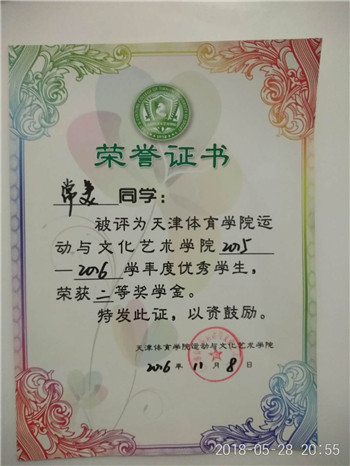 荣誉证书
常美 同学：
被评为天津体育学院运
动与文化艺术学院 2015
—2016 学年度优秀学生，
荣获 二 等奖学金。
特发此证，以资鼓励。
天津体育学院运动与文化艺术学院
2016 年 11 月 8 日
2018-05-28 20:55